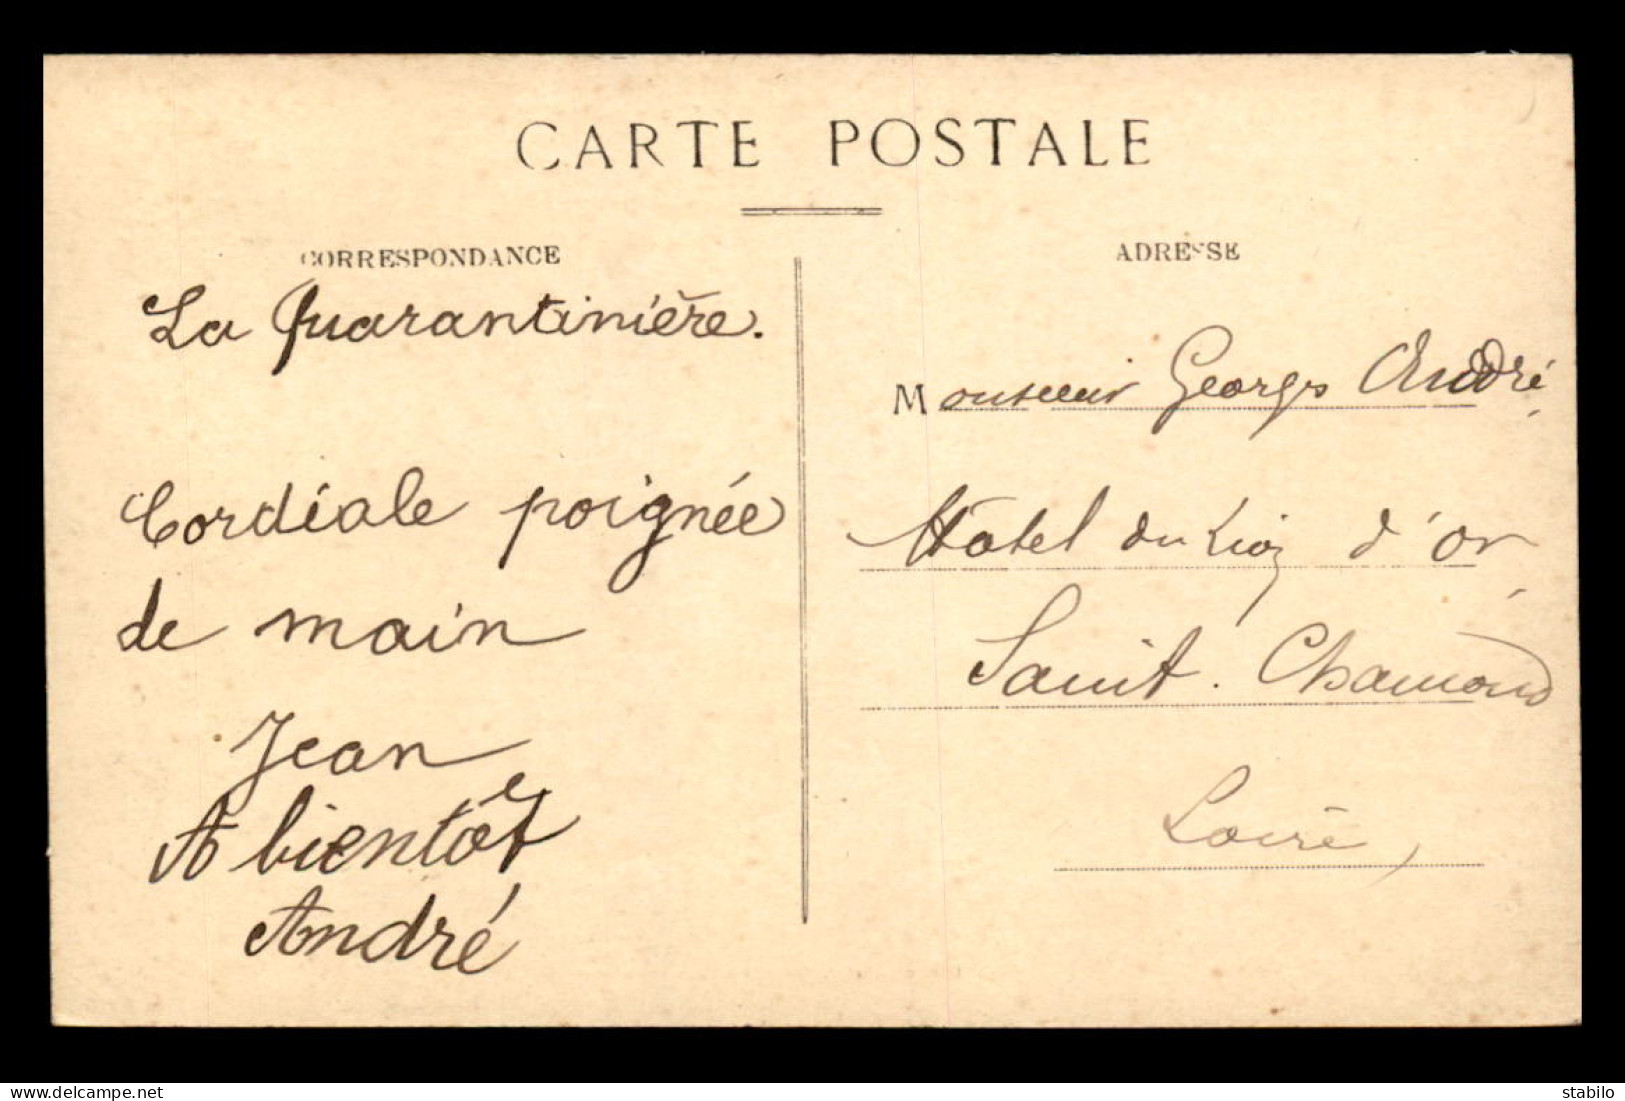 CARTE POSTALE
CORRESPONDANCE
La Quarantinière.
Cordiale poignée
de main
Jean
A bientôt
André
ADRESSE
Monsieur Georges André
Hôtel du Lion d'or
Saint. Chamond
Loire,
delcampe.net
stabilo